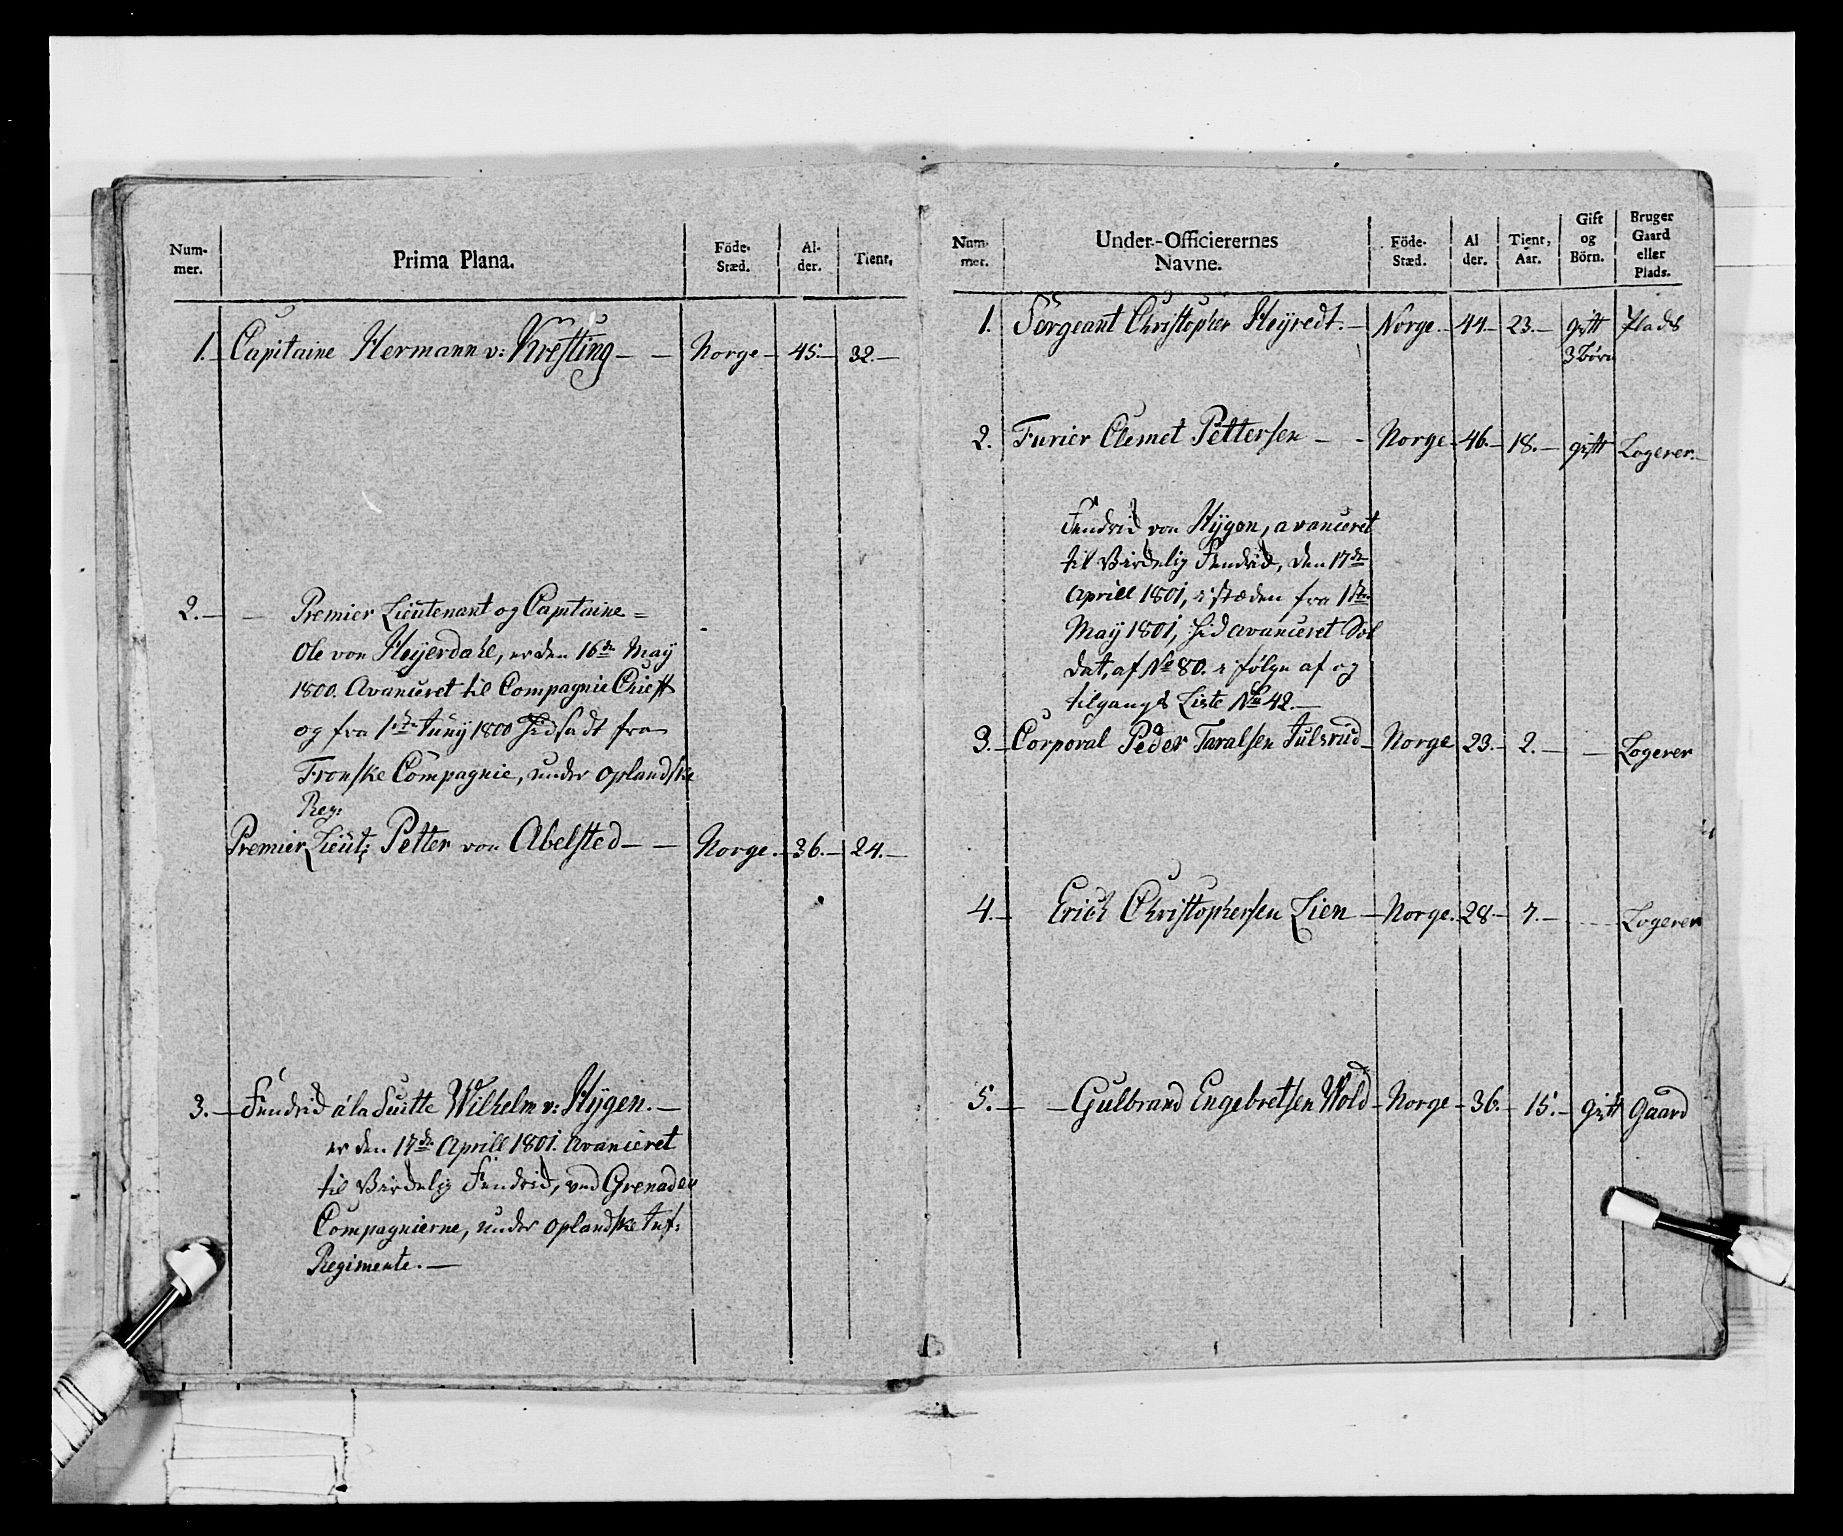 Num-
mer.
Prima Plana.
Föde-
Stæd.
Al-
der.
Tient.
1. Capitaine Hermann v: Krefting Norge 45. 32.
2. Premier Lieutenant og Capitaine
Ole von Heyerdahl, er den 16de May
1800. Avanceret til Compagnie Chieff
og fra 1de Juny 1800 hidsadt fra
Fronske Compagnie, under Oplandske
Reg:
Premier Lieut: Petter von Abelsted Norge 36. 24.
3. Fendrid á la Suitte Wilhelm v: Hygen.
er den 17de Aprill 1801. Avanceret
til Virdelig Fendrid, ved Grenader
Compagnierne, under Oplandske Inf:
Regimente.
Num-
mer.
Under-Officierernes
Navne.
Föde-
Stæd.
Al
der.
Tient,
Aar.
Gift
og
Börn.
Bruger
Gaard
eller
Plads.
1. Sergeant Christopher Heyredt. Norge 44 23. gift Plads
3 Børn
2. Furier Clemet Pettersen Norge 46. 18. gift Logerer.
Fendrid von Hygen, avanceret
til Virdelig Fendrid, den 17de
Aprill 1801, i stæden fra 1de
May 1801, hid avanceret Sol
dat, af No 80. i følge af og
tilgangs Liste No 42.
3. Corporal Peder Taralsen Julsrud Norge 23. 2. Logerer
4. Erich Christophersen Lien Norge. 28 7. Logerer
5. Gulbrand Engebretsen Wold Norge 36. 15. gift Gaard